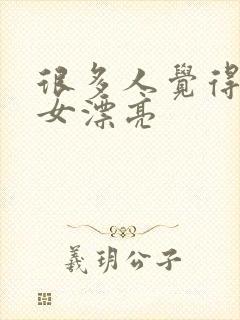 很多人覺得
女漂亮
羲玥公子